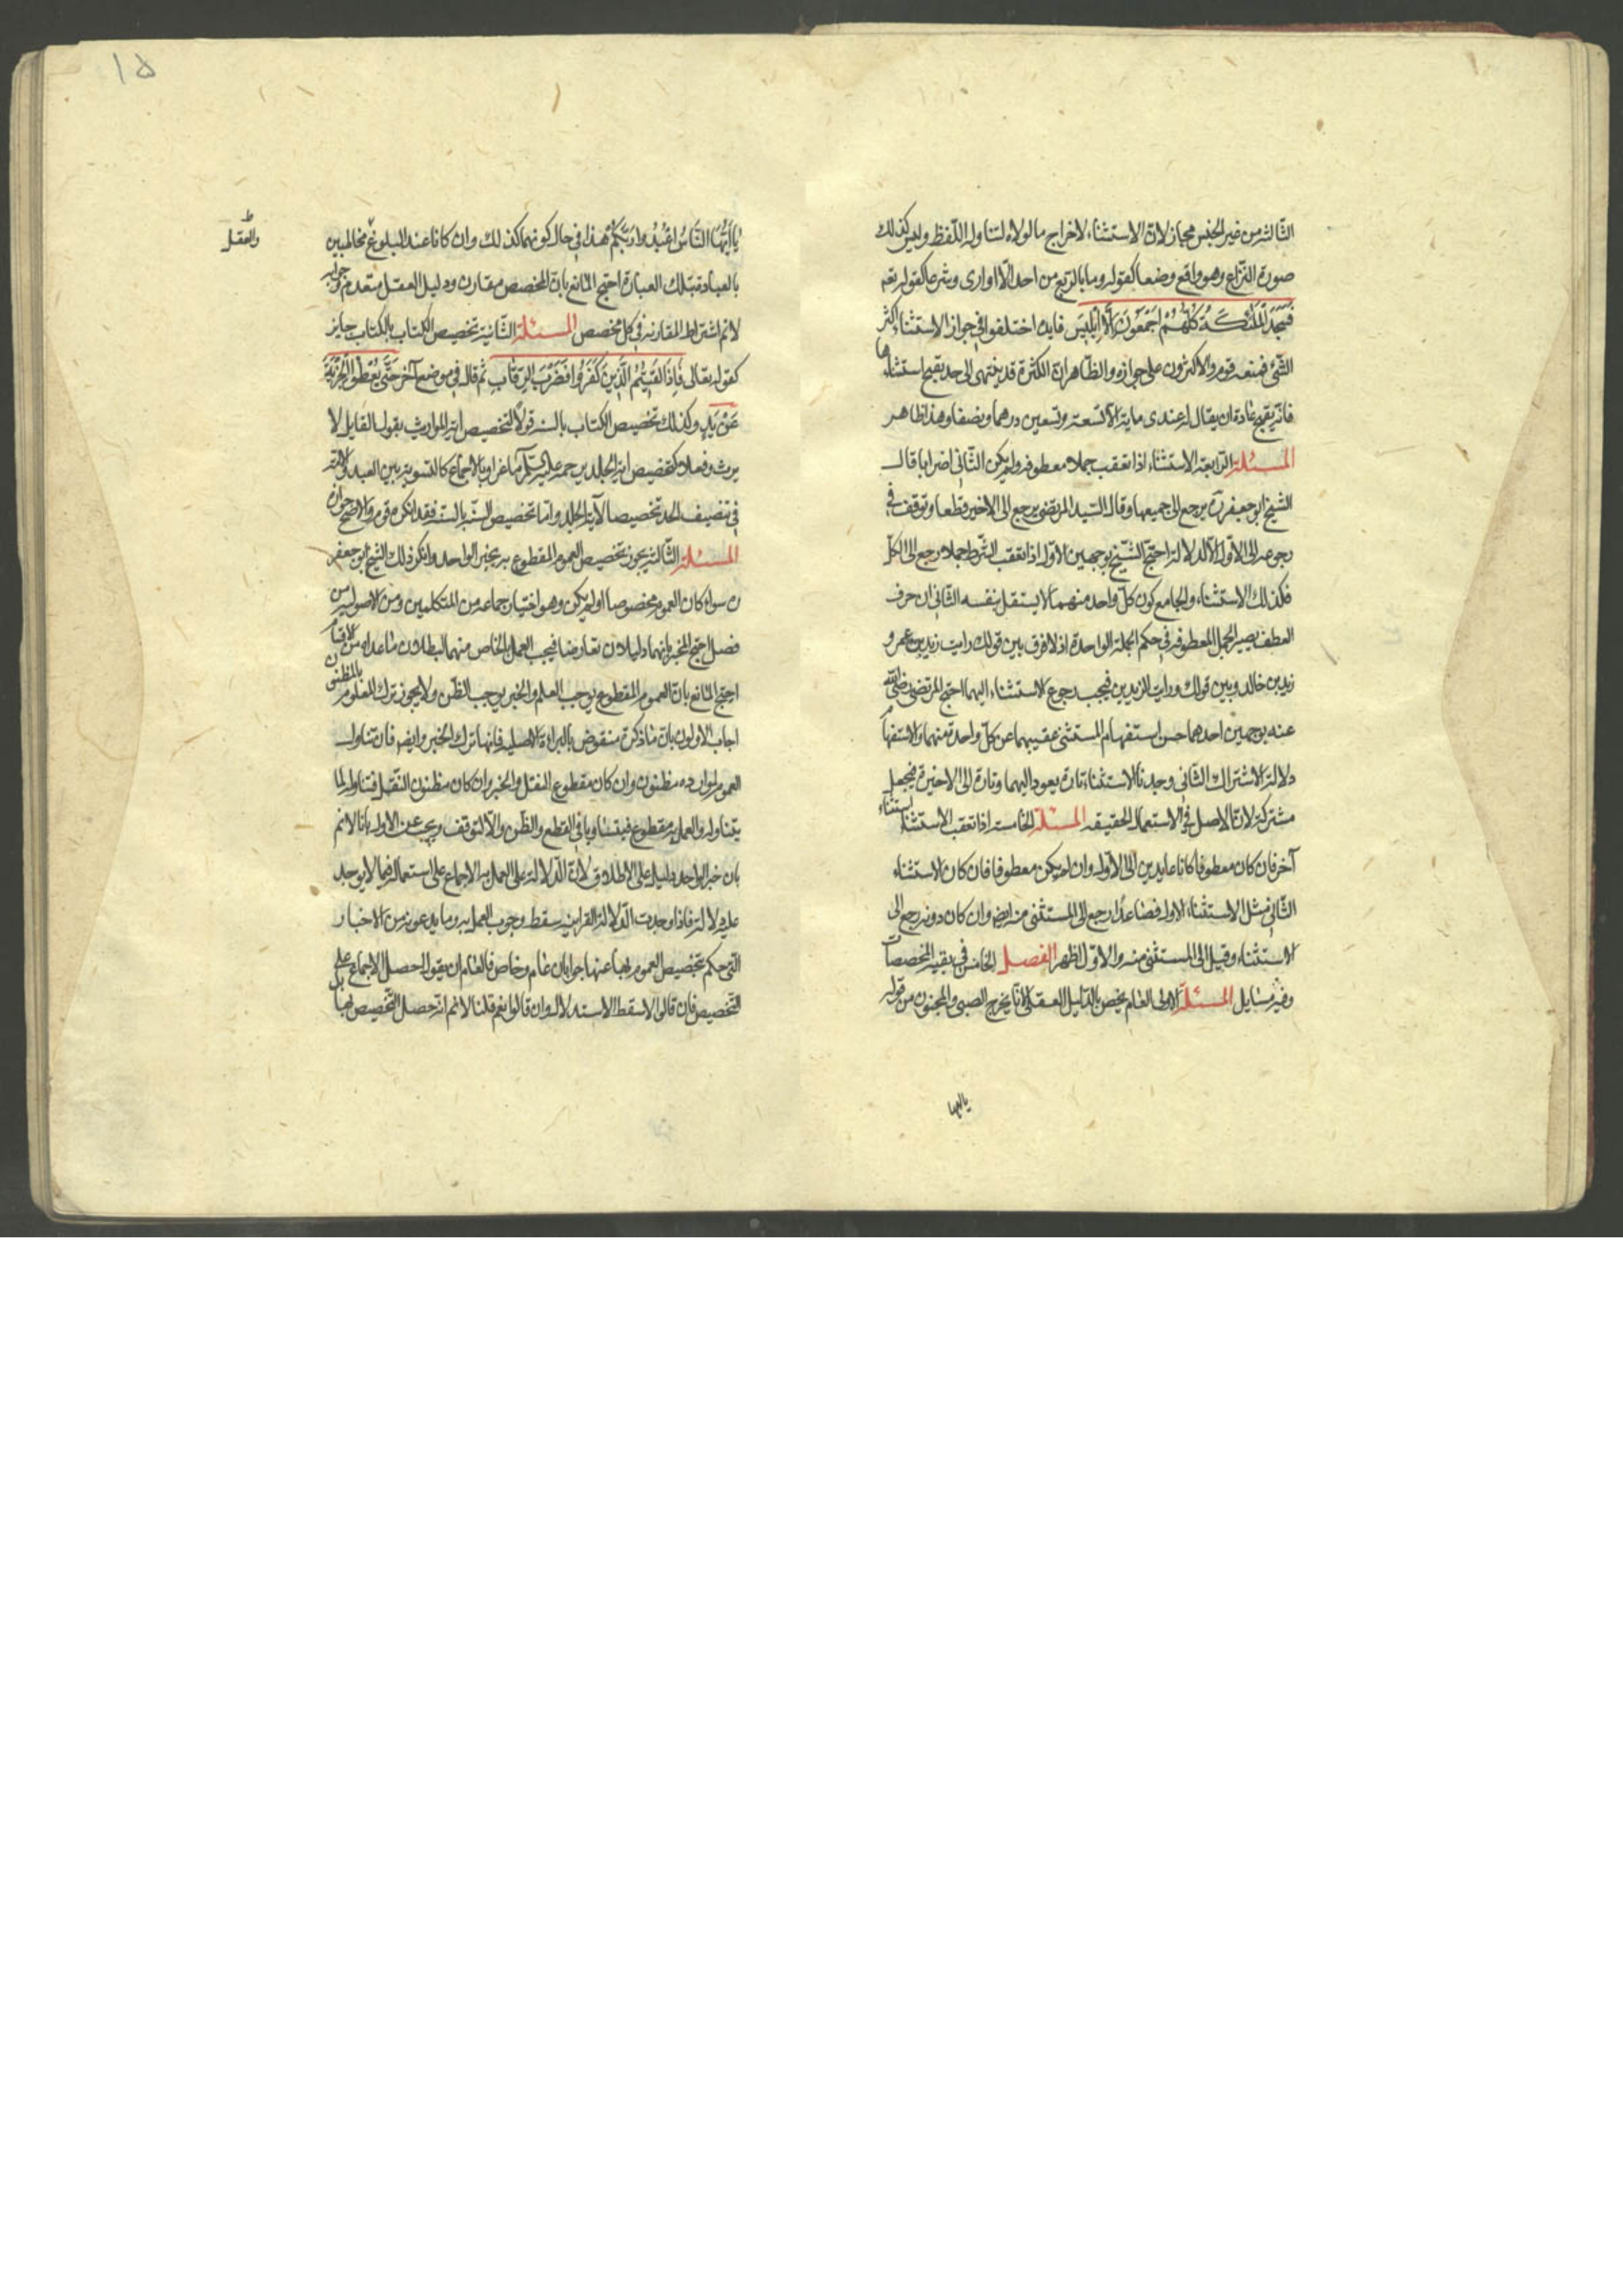 الثالثة من غير الجنس مجاز لان الاستثناء لاخراج ما لولاه لتناوله اللفظ وليس كذلك
صورة النزاع وهو واقع وضعا كقوله وما بالربع من احد الا اوارى وشرعا كقوله تعه
فَسَجَدَ الْمَلٰئِكَةُ كُلُّهُمْ اَجْمَعُونَ اِلَّا اِبْلِيسَ فايدة اختلفوا في جواز الاستثناء اكثر
الشئ فمنعه قوم والاكثرون على جوازه والظاهر ان الكثرة قد ينتهى الى حد يقبح استثناءها
فانه يقبح عادة ان يقال له عندى ماية الا تسعة وتسعين درهما ونصفا وهذا ظاهر
المسئلة الرابعة الاستثناء اذا تعقب جملا معطوفة ولم يكن الثانى اضرابا قال
الشيخ ابو جعفر ره يرجع الى جميعها وقال السيد المرتضى يرجع الى الاخير قطعا وتوقف في
رجوعه الى الاول الا لدلالة احتج الشيخ بوجهين الاول اذا تعقب الشرط جملا رجع الى الكل
فكذلك الاستثناء والجامع كون كل واحد منهما لا يستقل بنفسه الثانى ان حرف
العطف يصير الجمل المعطوفة في حكم الجملة الواحدة اذ لا فرق بين قولك رايت زيد بن عمرو
زيد بن خالد وبين قولك ورايت الزيدين فيجب رجوع الاستثناء اليهما احتج المرتضى رضى الله
عنه بوجهين احدهما حسن استفهام المستثنى عقيبهما عن كل واحدة منهما والاستفهام
دلالة الاشتراك الثانى وجدنا الاستثناء تارة يعود اليهما وتارة الى الاخيرة فيجعل
مشتركة لان الاصل في الاستعمال الحقيقه المسئلة الخامسة اذا تعقب الاستثناء استثناء
آخر فان كان معطوفا كانا عايدين الى الاول وان لم يكن معطوفا فان كان الاستثناء
الثانى مثل الاستثناء الاول فصاعدًا رجع الى المستثنى منه ايض وان كان دونه رجع الى
الاستثناء وقيل الى المستثنى منه والاول اظهر الفصل الخامس في بقية المخصصات
وفيه مسايل المسئلة الاولى العام يخص بالدليل العقلى لانا يخرج الصبى والمجنون من قوله
يا ايها
١٥
يٰا اَيُّهَا النَّاسُ اعْبُدُوا رَبَّكُمْ هذا في حال كونهما كذلك وان كانا عند البلوغ مخاطبين
والعقل
بالعبادة بتلك العبارة احتج المانع بان المخصص مقارن ودليل العقل متقدم جوابه
لا نم اشتراط المقارنة في كل مخصص المسئلة الثانية تخصيص الكتاب بالكتاب جايز
كقوله تعالى فَاِذَا لَقِيتُمُ الَّذِينَ كَفَرُوا فَضَرْبَ الرِّقَابِ ثم قال في موضع آخر حَتَّى يُعْطُوا الْجِزْيَةَ
عَنْ يَدٍ وكذلك تخصيص الكتاب بالسنة قولاً لتخصيص اية المواريث بقوله القاتل لا
يرث وفعلا كتخصيص اية الجلد برجمه عليه السلم ماعزا وبالاجماع كالتسوية بين العبد والامة
في تنصيف الحد تخصيصا لآية الجلد واما تخصيص السنة بالسنة فقد انكره قوم والاصح جوازه
المسئلة الثالثة يجوز تخصيص العموم المقطوع به بخبر الواحد وانكر ذلك الشيخ ابو جعفر
ره سواء كان العموم مخصوصا او لم يكن وهو اختيار جماعة من المتكلمين ومن الاصوليين من
فصل احتج المخبر بانهما دليلان تعارضا فيجب العمل بالخاص منهما لبطلان ما عداه من الاقسام
احتج المانع بان العموم المقطوع يوجب العلم والخبر يوجب الظن ولا يجوز ترك المعلوم بالمظنون
اجاب الاولون بان ما ذكرته منقوض بالبراءة الاصلية فانها تترك الخبر وايض فان تناول
العموم لموارده مظنون وان كان مقطوع النقل والخبر وان كان مظنون النقل فتناوله لما
يتناوله والعمل به مقطوع فيتساويا في القطع والظن والا لتوقف ويجب عن الاول بانا لا نم
بان خبر الواحد دليل على الاطلاق لان الدلالة على العمل به الاجماع على استعماله فيما لا يوجد
عليه دلالة فاذا وجدت الدلالة القرانية سقط وجوب العمل به وما يدعونه من الاخبار
التى حكم بتخصيص العموم بها عنها جوابان عام وخاص فالعام ان يقول احصل الاجماع على
التخصيص فان قالوا لا سقط الاستدلال وان قالوا نعم قلنا لا نم انه حصل التخصيص بها بل